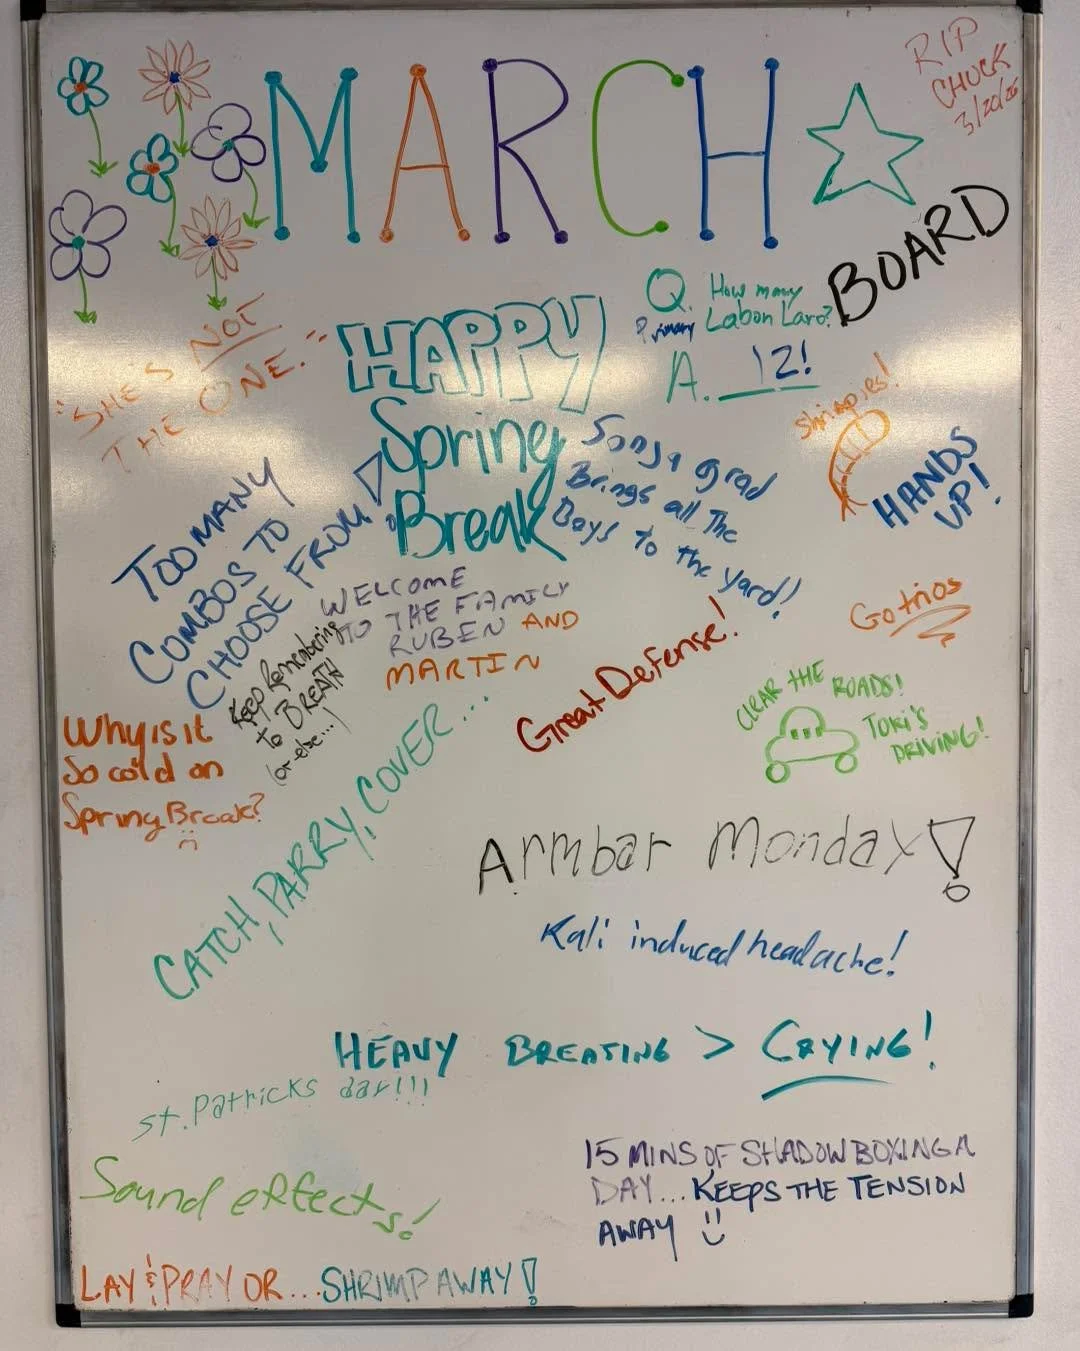 MARCH
RIP
CHUCK
3/20/26
BOARD
"SHE'S NOT
THE ONE."
HAPPY
Spring
Break
Q. How many
Primary Labon Laro?
A. 12!
Shrimpies!
HANDS
UP!
TOO MANY
COMBOS TO
CHOOSE FROM!
Sonya grad
Brings all The
Boys to the yard!
WELCOME
TO THE FAMILY
RUBEN AND
MARTIN
Keep Remembering
to BREATH
(or else...)
Great Defense!
Go trios
CLEAR THE ROADS!
TOKI'S
DRIVING!
Why is it
So cold on
Spring Break?
CATCH, PARRY, COVER...
Armbar Monday!
Kali induced headache!
HEAVY BREATING > CRYING!
St. Patricks day!!!
Sound effects!
15 MINS OF SHADOWBOXING A
DAY... KEEPS THE TENSION
AWAY
LAY & PRAY OR... SHRIMP AWAY!